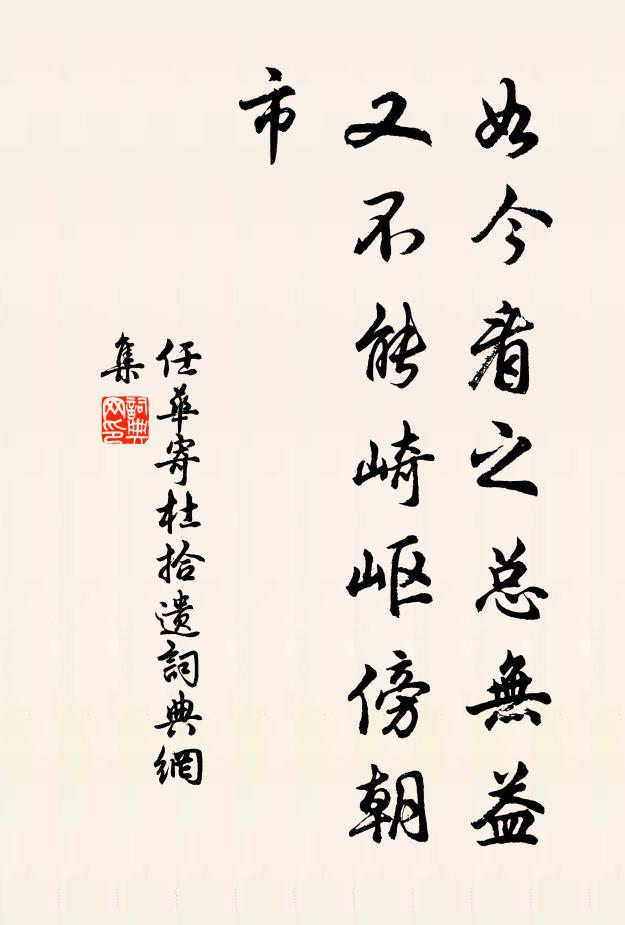 如今看之总無益
又不能崎岖傍朝
市
任華寄杜拾遺詞典網
集
詞典
网印